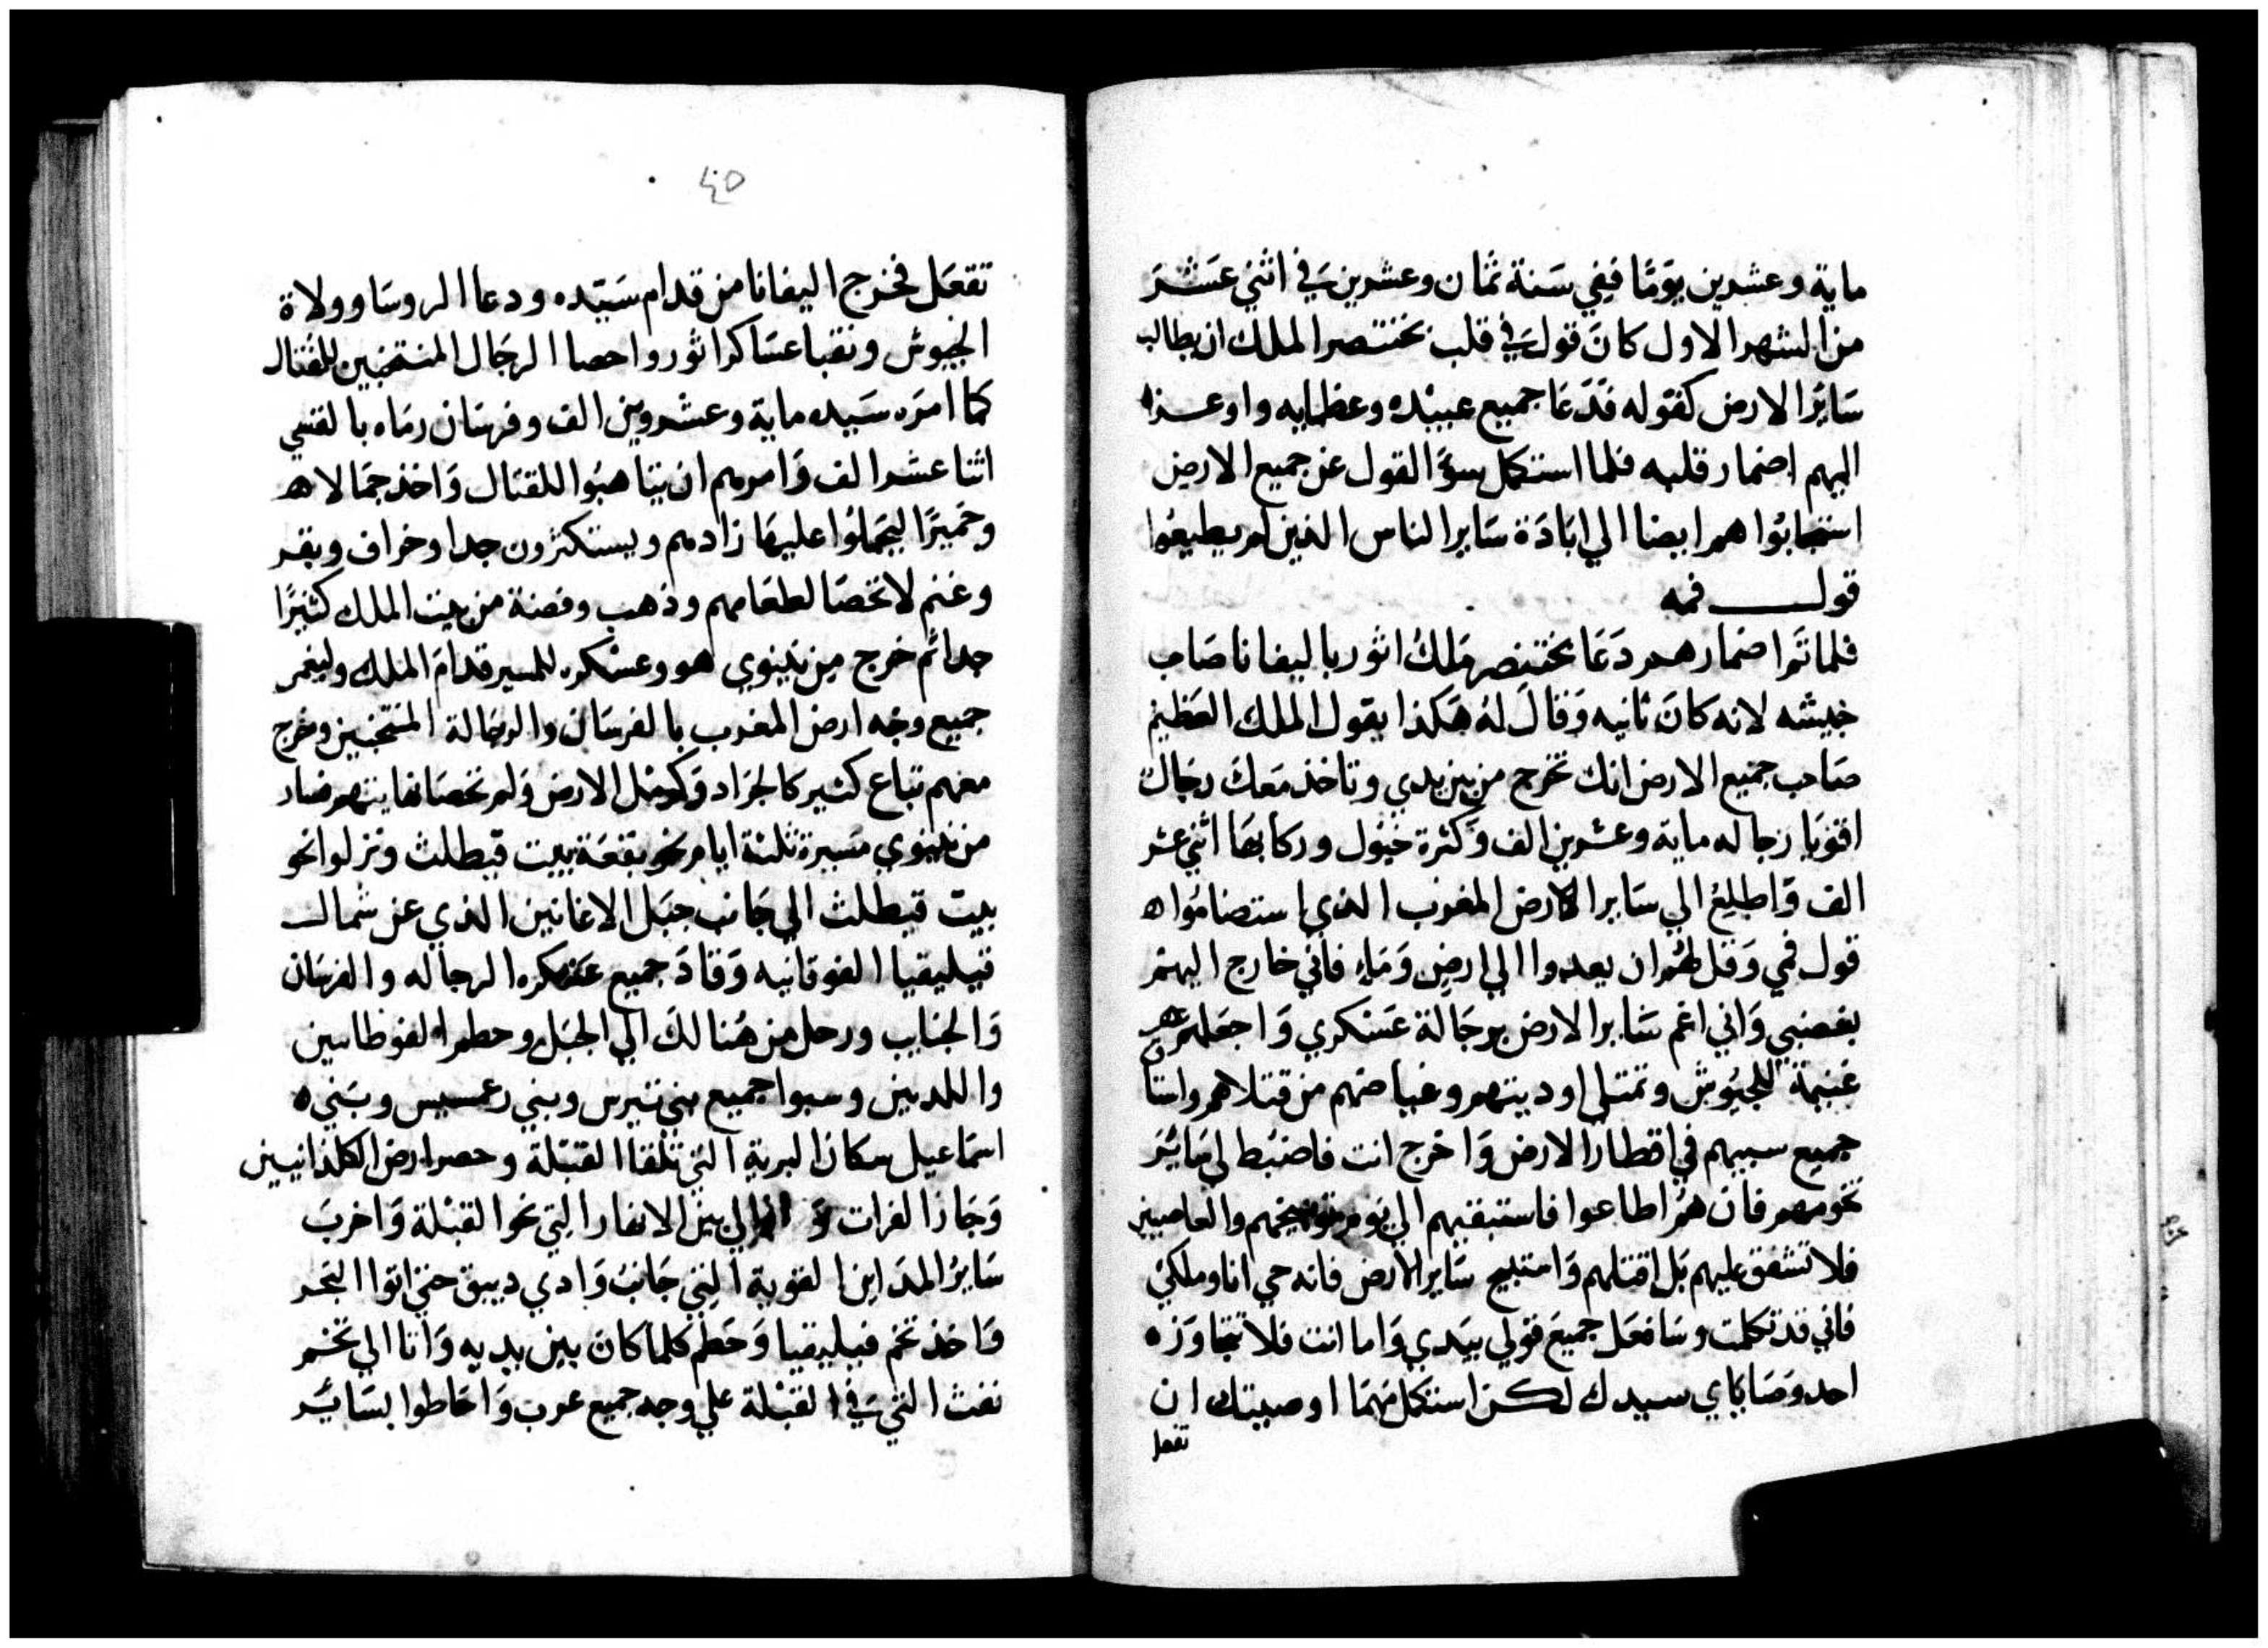 ماية وعشرين يوَمًا ففي سَنة ثمان وعشرين في اثني عَشَرَ
من الشهر الاول كانَ قول في قلب بختنصر الملك ان يطالب
سَايرُ الارض كقوله فدَعَا جميع عبيده وعظمايه واوعز
اليهم اضمار قلبه فلما استكمل سوَّ القول عن جميع الارض
استصابُوا هم ايضا الي ابَادَة سَاير الناس الذين لم يطيعُوا
قول فمه
فلما تمَوا ضمارهم دَعَا بختنصر مَلكُ اثور باليفانا صَاحب
جيشه لانه كانَ ثانيه وَقالَ لهُ هَكذا يقول الملك العَظيم
صَاحب جميع الارض انك تخرج من بين يدي وتاخذ مَعكَ رجَال
اقوَيا رجاله ماية وعشرين الف وَكثرة خيُول وركابهَا اثني عشر
الف وَاطلعُ الي سَاير الارض المغرب الذي استضامُوا
قول فمي وَقل لهُم ان يعدوا الي ارضٍ وَمَاءٍ فاني خارج اليهم
بغضبي وَاني اغم سَاير الارض برجَالة عَسْكري وَاجعَلهم
غنيمة للجيُوش وتمتلي اوديتهم وغياضهم من قتلاهم واستا
جميع سبيهم في اقطار الارض وَاخرج انت فاضبُط لي سَايُر
تخومهم فان همُ اطاعوا فاستبقيهم الي يوم توبيخهم والعاصيين
فلا تشفق عليهم بَل اقتلهم وَاستبيح سَاير الارض فانه حي انا وملكي
فاني قد تكلمت وسَافعَل جميعَ قولي بيَدي وَاما انت فلا تتجَاوَزه
احد وَصَايَاي سيدك لكن استكمل مهمَا اوصيتك ان
تفعل
٤٥
تفعَل فخرج اليفانا من قدام سَيّده ودعا الروسَا وولاة
الجيوش ونقبا عسَاكر اثور واحصا الرجَال المنتخبين للقتال
كما امرَه سَيده ماية وعشروين الف وفرسَان رمَاه بالقسي
اثنا عشر الف وَامرهم ان يتاهبُوا للقتَال وَاخذ جمَالا
وحَميرًا ليحَملوُا عليهَا زادهم ويستكثرون جدا وخراف وبقر
وغنم لا تحصَا لطعَامهم وذهب وفضة من بيت الملك كثيرًا
جدا ثم خرج من نينوي هو وعسْكره للمسير قدامَ الملك وليغمر
جميع وجه ارض المغرب بالفرسَان والرجَالة المنتخبين وخرج
معهم تباع كثير كالجرَاد وَكرمل الارض وَلم تحصَا نهايتهم فسار
من نينوي مسيرة ثلثة ايام نحو بقعَة بيت قيطلث ونزلوا نحو
بيت قيطلث الي جَانب جبَل الاغانين الذي عن شمال
قيليقيا الفوقانيه وَقادَ جميع عسْكره الرجاله والفرسَان
وَالجنايب ورحل من هُنالكَ الي الجبَل وحطموا لفوطاسين
واللديين وسبوا جميع بني تيرس وبني رعمسيس وبَني
اسمَاعيل سكان البرية التي تلقا القبَلة وحصر ارض الكلدانيين
وَجَاز الفرات بين الانهار التي نحو القبْلة وَاخربَ
سَايرُ المدَاين القوية التي جَانبُ وَادي ديبق حتي اتوا البَحر
وَاخذ تخم قيليقيا وَحَطم كلما كان بين يديه وَاتا الي تخم
نفث التي في القبْلة علي وجه جميع عرب وَاحَاطوا بسَايَر